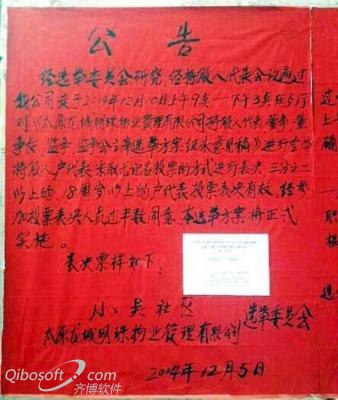 公告
经选举委员会研究，经持股人代表会议通过
我公司定于2014年12月10日上午9点——下午3点在5厅
对《太原龙城明珠物业管理有限公司持股人代表、董事、董
事长、监事、监事会主席选举方案征求意见稿》进行
持股人户代表采取无记名投票的方式进行表决，三分之二
以上的18周岁以上的户代表投票表决有效，经参
加投票表决人员过半数同意，本选举方案将正式
实施。
表决票样如下：
小吴社区
太原龙城明珠物业管理有限公司 选举委员会
2014年12月5日
过
上一
确
职
Qibosoft.com
齐博软件